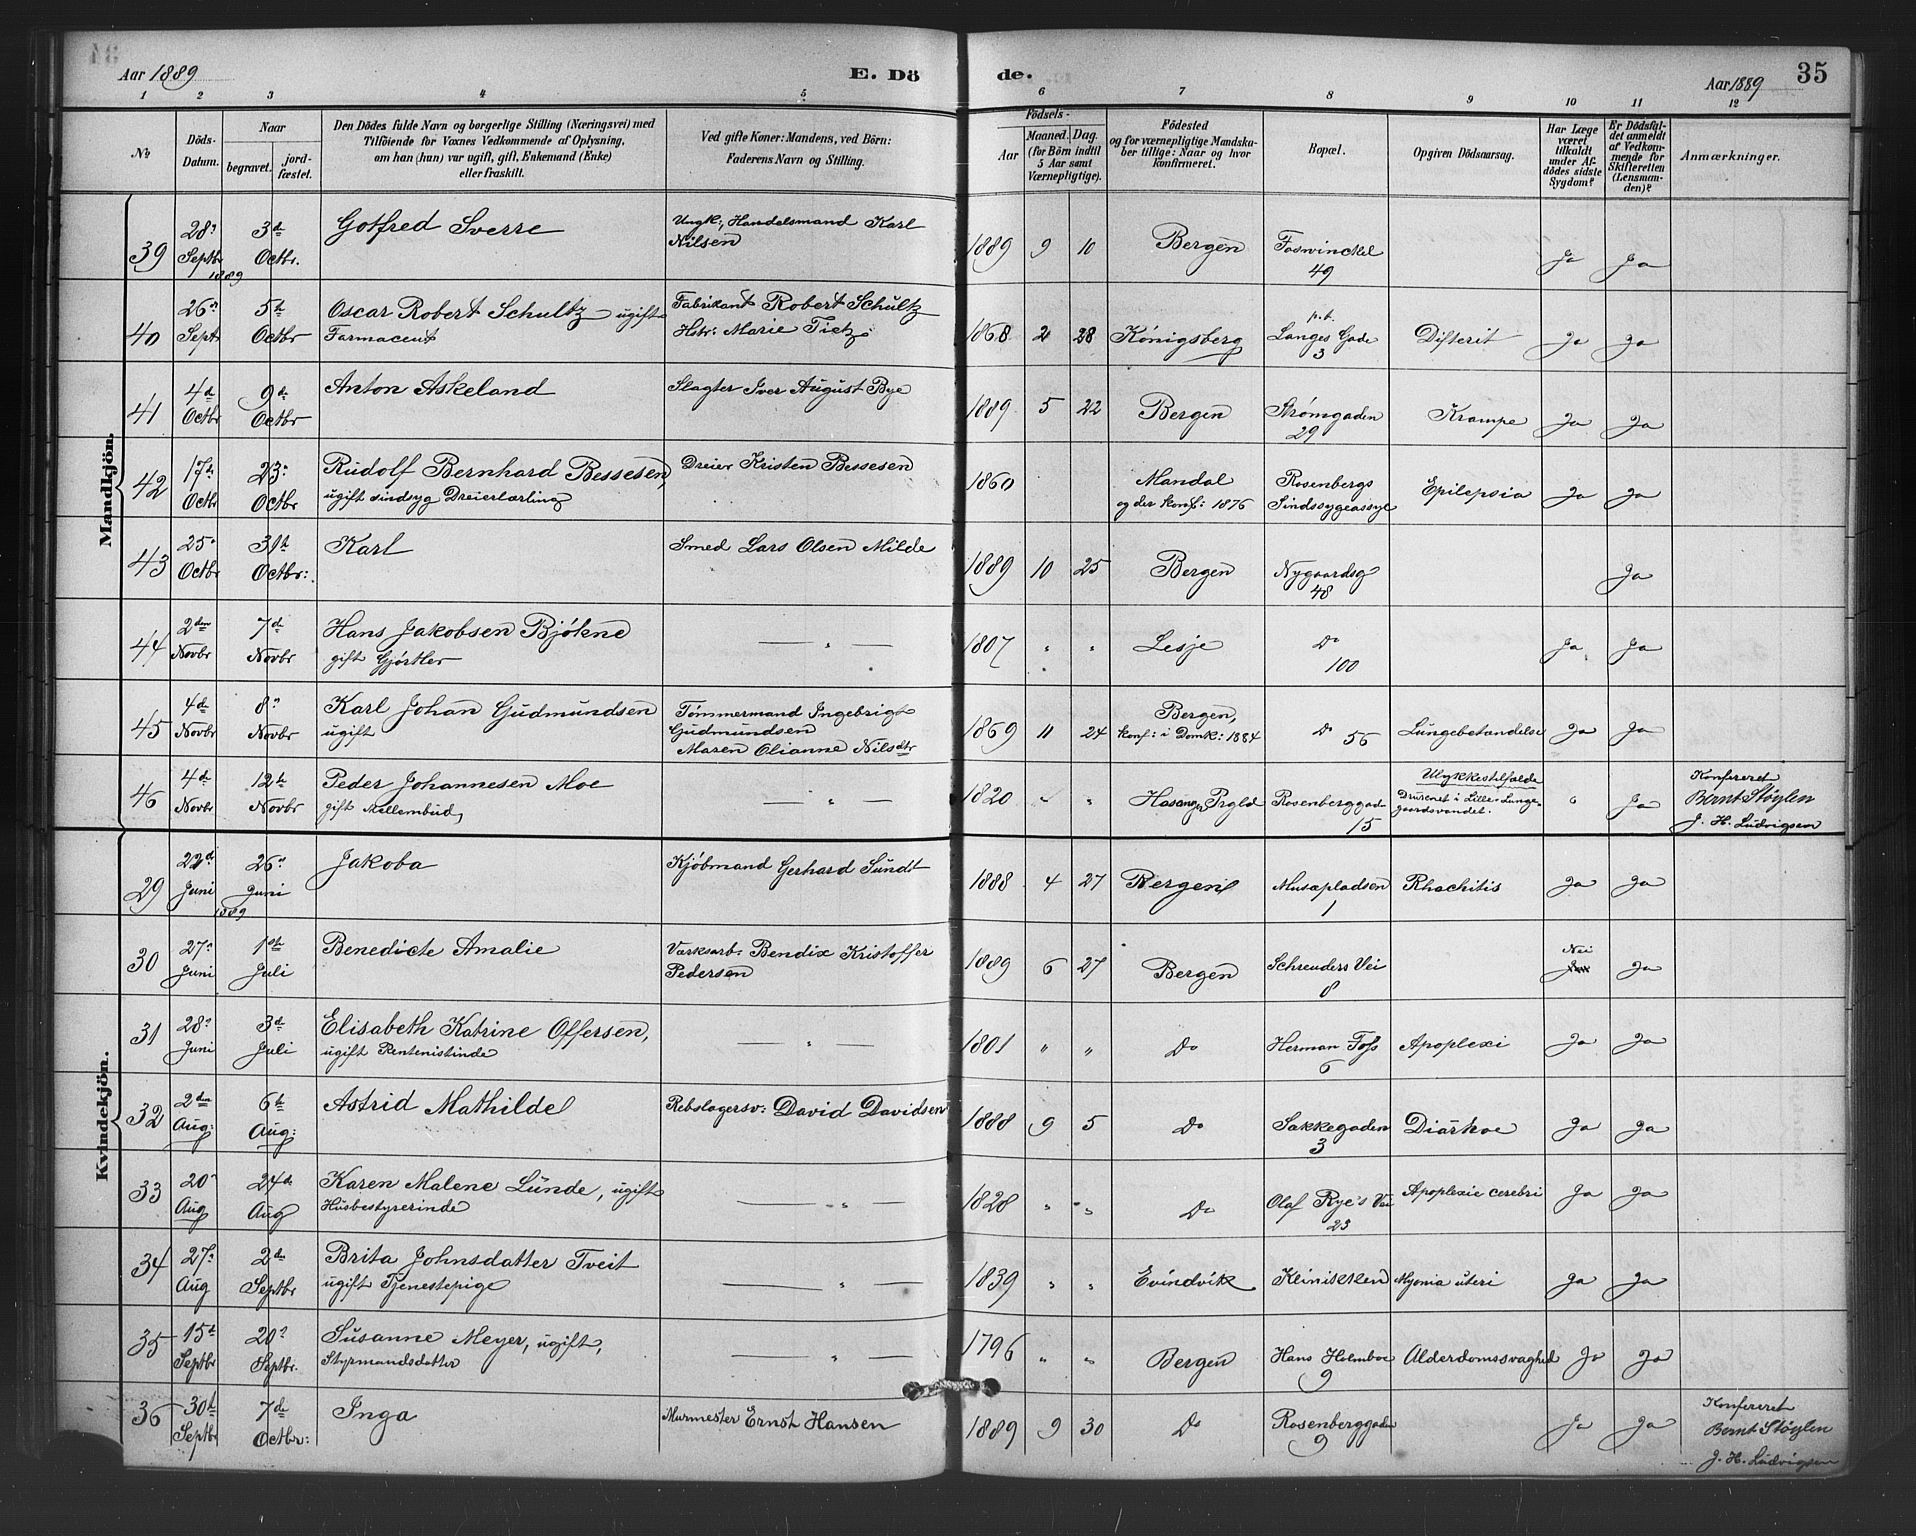 Aar 1889
E. Dö
de.
Aar 1889
35
1 2 3 4 5 6 7 8 9 10 11 12
No
Döds-Datum.
Naar
begravet. jord-fæstet.
Den Dödes fulde Navn og borgerlige Stilling (Næringsvei) med
Tilföiende for Voxnes Vedkommende af Oplysning,
om han (hun) var ugift, gift, Enkemand (Enke)
eller fraskilt.
Ved gifte Koner: Mandens, ved Börn:
Faderens Navn og Stilling.
Födsels-
Aar Maaned. Dag.
(for Börn indtil
5 Aar samt
Værnepligtige).
Födested
og for værnepligtige Mandska-
ber tillige: Naar og hvor
konfirmeret.
Bopæl.
Opgiven Dödsaarsag.
Har Læge
været
tilkaldt
under Af-
dödes sidste
Sygdom?
Er Dödsfal-
det anmeldt
af Vedkom-
mende for
Skifteretten
(Lensman-
den)?
Anmærkninger.
Mandkjön.
39 28. Septbr 1889 3d Octbr. Gotfred Sverre Ungk; Handelsmand Karl Nilsen 1889 9 10 Bergen Foswinckel 49 Ja Ja
40 26. Sept 5t Octbr Oscar Robert Schultz ugift Farmaceut Fabrikant Robert Schultz Hstr: Marie Tietz 1868 2 28 Königsberg p.t. Langes Gade 3 Difterit Ja Ja
41 4d Octbr 9d Octbr Anton Askeland Slagter Iver August Bye 1889 5 22 Bergen Strømgaden 29 Krampe Ja Ja
42 17h Octbr 23. Octbr Rudolf Bernhard Bessesen, ugift sindsyg Dreierlærling Dreier Kristen Bessesen 1860 Mandal og der konf: 1876 Rosenbergs Sindssygeassyl Epilepsia Ja Ja
43 25. Octbr 31h Octbr: Karl Smed Lars Olsen Milde 1889 10 25 Bergen Nygaardsg 48 Ja
44 2den Novbr 7d Novbr Hans Jakobsen Bjökne gift Gjørtler — „ — 1807 „ „ Lesje Do 100 Ja Ja
45 4de Novbr 8. Novbr Karl Johan Gudmundsen ugift Tömmermand Ingebrigt Gudmundsen Maren Olianne Nilsdtr 1869 11 24 Bergen, konf: i Domk: 1884 Do 56 Lungebetændelse Ja Ja
46 4d Novbr 12te Novbr Peder Johannesen Moe gift Mellembud, — „ — 1820 „ „ Prgld Rosenberggad 15 Ulykkestilfælde Druknet i Lille Lungegaardsvandet. „ Ja Konfereret Bernt Støylen J. H. Ludvigsen
Kvindekjön.
29 22d Juni 1889 26. Juni Jakoba Kjöbmand Gerhard Sundt 1888 4 27 Bergen Musæpladsen 1 Rhachitis Ja Ja
30 27. Juni 1st Juli Benedicte Amalie Værksarb. Bendix Kristoffer Pedersen 1889 6 27 Bergen Schreuders Vei 8 Nei Ja
31 28. Juni 3d Juli Elisabeth Katrine Offersen, ugift Rentenistinde — „ — 1801 „ „ Do Herman Foss 6 Apoplexi Ja Ja
32 2den Aug: 6te Aug: Astrid Mathilde Rebslagersv: David Davidsen 1888 9 5 Do Sakkegaden 3 Diärhoe Ja Ja
33 20. Aug 24de Aug Karen Malene Lunde, ugift Husbestyrerinde — „ — 1828 „ „ Do Olaf Rye's Vei 23 Apoplexie cerebri Ja Ja
34 27. Aug 2de Septbr Brita Johnsdatter Tveit ugift Tjenestepige — „ — 1839 „ „ Evindvik Klinikken Myoma uteri Ja Ja
35 15d Septbr 20. Septbr. Susanne Meyer, ugift, Styrmandsdatter — „ — 1796 „ „ Bergen Hans Holmboe 9 Alderdomssvaghed Ja Ja
36 30t Septbr 7de Octbr: Inga Murmester Ernst Hansen 1889 9 30 Do Rosenberggaden 9 Ja Ja Konfereret Bernt Støylen J. H. Ludvigsen